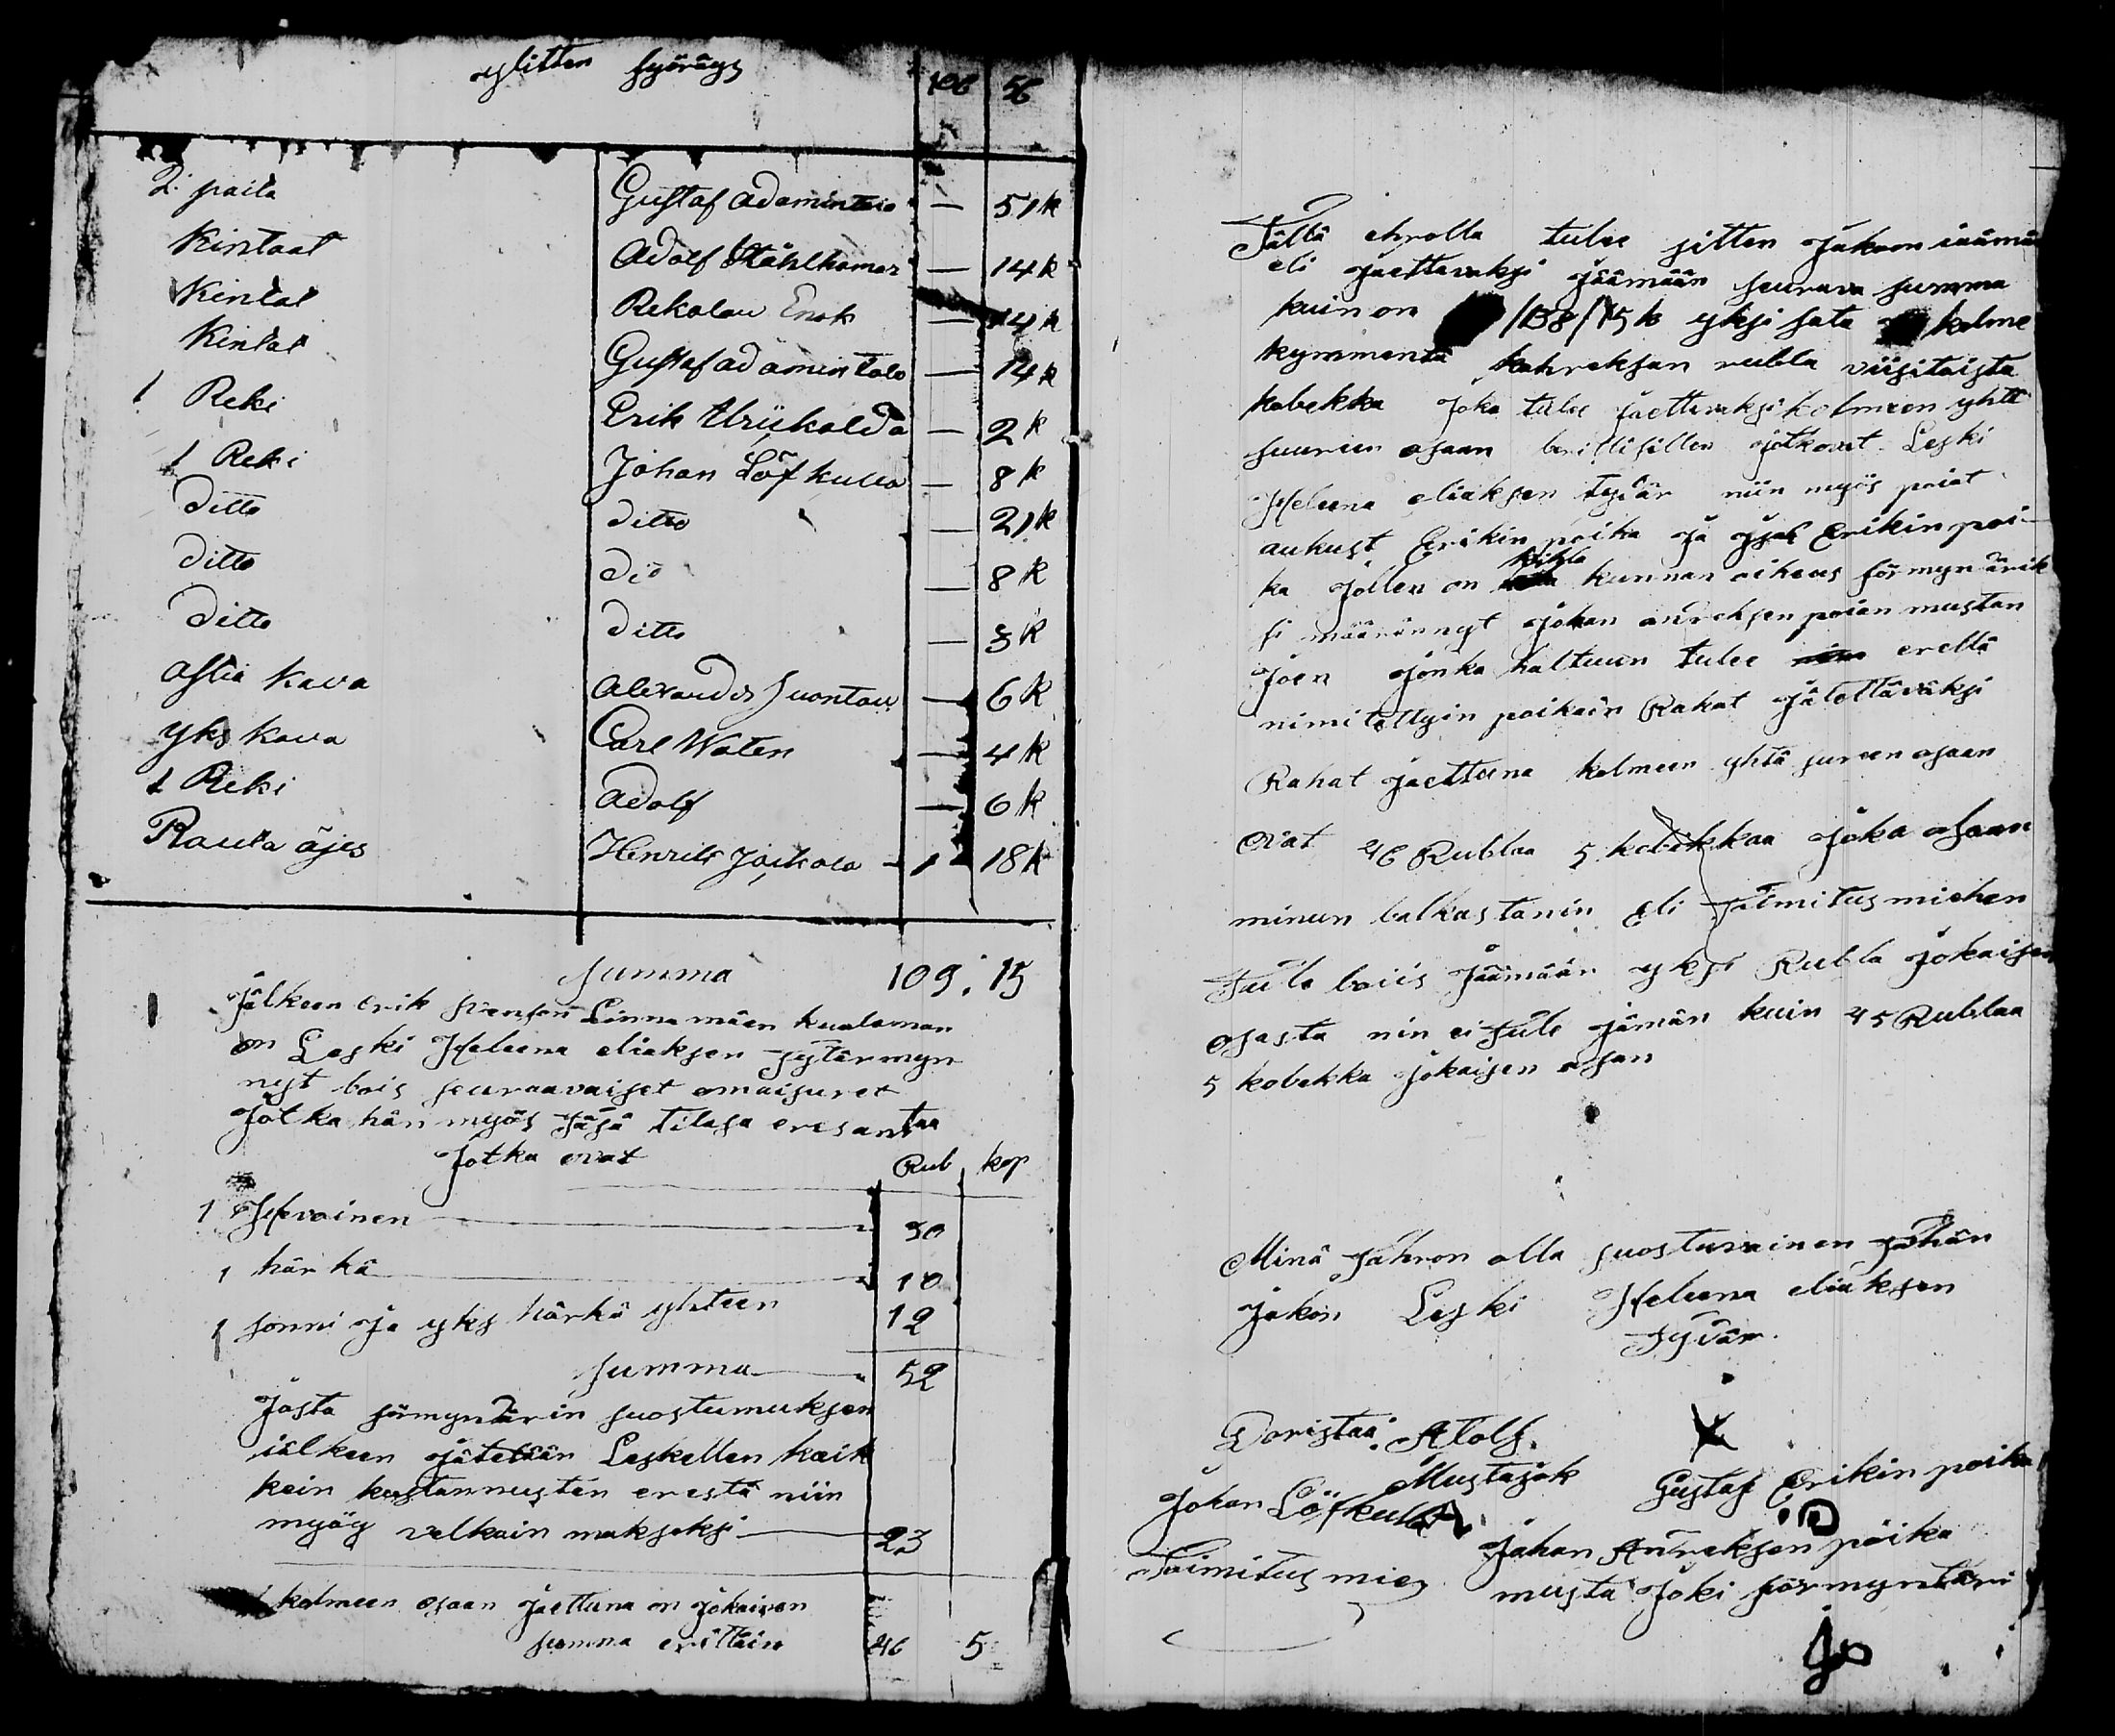 ylitten syöräys 106 56
2. paita Gustaf adamintalo — 51 k
Kintaat Adolf Ståhlhamar — 14 k
Kintat Rekolan Enok — 14 k
Kintat Gustaf adamintalo — 14 k
1 Reki Erik Uriikalda — 2 k
1 Reki Johan Löfkulla — 8 k
ditto ditto — 21 k
ditto dio — 8 k
ditto ditto — 3 k
astia kava Alexander Juontau — 6 k
yks kava Carl Waten — 4 k
1 Reki Adolf — 6 k
Rauta äjes Henrik Joikola — 1 18 k
summa 109. 15
Jälkeen Erik Svensson Linnamäen kualeman
on Leski Heleena eliaksen tytär myn
nyt bois seuraavaiset omaisuret
Jotka hän myös täsä tilasa eresantaa
Jotka ovat Rub kop
1 Hevoinen 30
1 härkä 10
1 sonni Ja yks härkä yhteen 12
summa 52
Josta förmyndärin suostumuksen
iälkeen jätetään Leskellen kaik
kein kustannusten erestä niin
myög velkain maksoksi 23
kolmeen osaan Jaettuna on Jokainen
summa erittäin 46 5
Tällä ehrolla tulee sitten Jakoon iäämä
eli Jaettavaksi Jäämään seurava summa
kuin on /138/15 k yksi sata kolme
kymmentä kahreksan rubla viisitoista
kobekka Joka tulee jaettavaksi kolmeen yhtä
suureen osaan berillisillen Jotkovat Leski
Heleena eliaksen tytär niin myös poiat
aukust Erikin poika Ja Isak Erikin poi
ka Jollen on kihla kunnan oikeus förmynärik
si määrännyt Johan anreksen poian mustan
Joen Jonka haltuun tulee erellä
nimitettyin poikain Rahat Jätettäväksi
Rahat Jaettuna kolmeen yhtä sureen osaan
Ovat 46 Rublaa 5 kobekkaa Joka osaan
minun balkastanin Eli toimitusmiehen
Tule bois Jäämään yksi Rubla Jokaisen
osasta nin ei tule Jämän kuin 45 Rublaa
5 kobekka Jokaisen osan
Minä Jahron olla suosturainen tähän
Jakon Leski Heleena eliaksen
tytär
Doristaa Atolf
Mustajok Gustaf Erikin poika
Johan Löfkulla
Johan Anreksen poika
Toimitus mies musta Joki förmyntäri